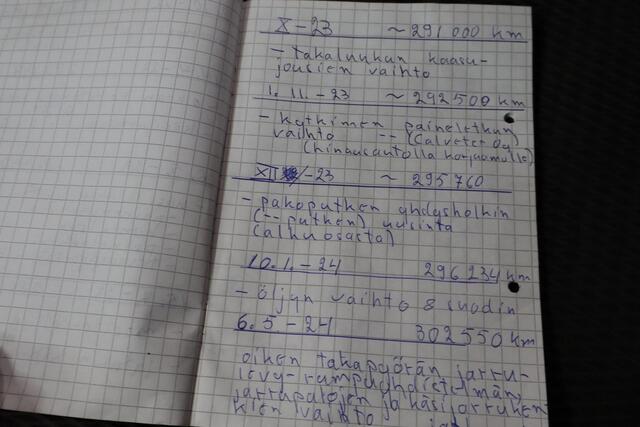 X-23 ~ 291 000 km
- takaluukun kaasu-
jousien vaihto
1. 11. -23 ~ 292 500 km
- kytkimen paineletkun
vaihto -"- (Calveter Oy)
(hinausautolla korjaamolle)
XII -23 ~ 295 760
- pakoputken yhdysholkin
(-"- putken) uusinta
(alkuosasta)
10. 1. - 24 296 234 km
- öljyn vaihto & suodin
6. 5 - 24 302 550 km
oikean takapyörän jarru-
levy-rumpuyhdistelmän,
jarrupalojen ja käsijarruken
kien vaihto